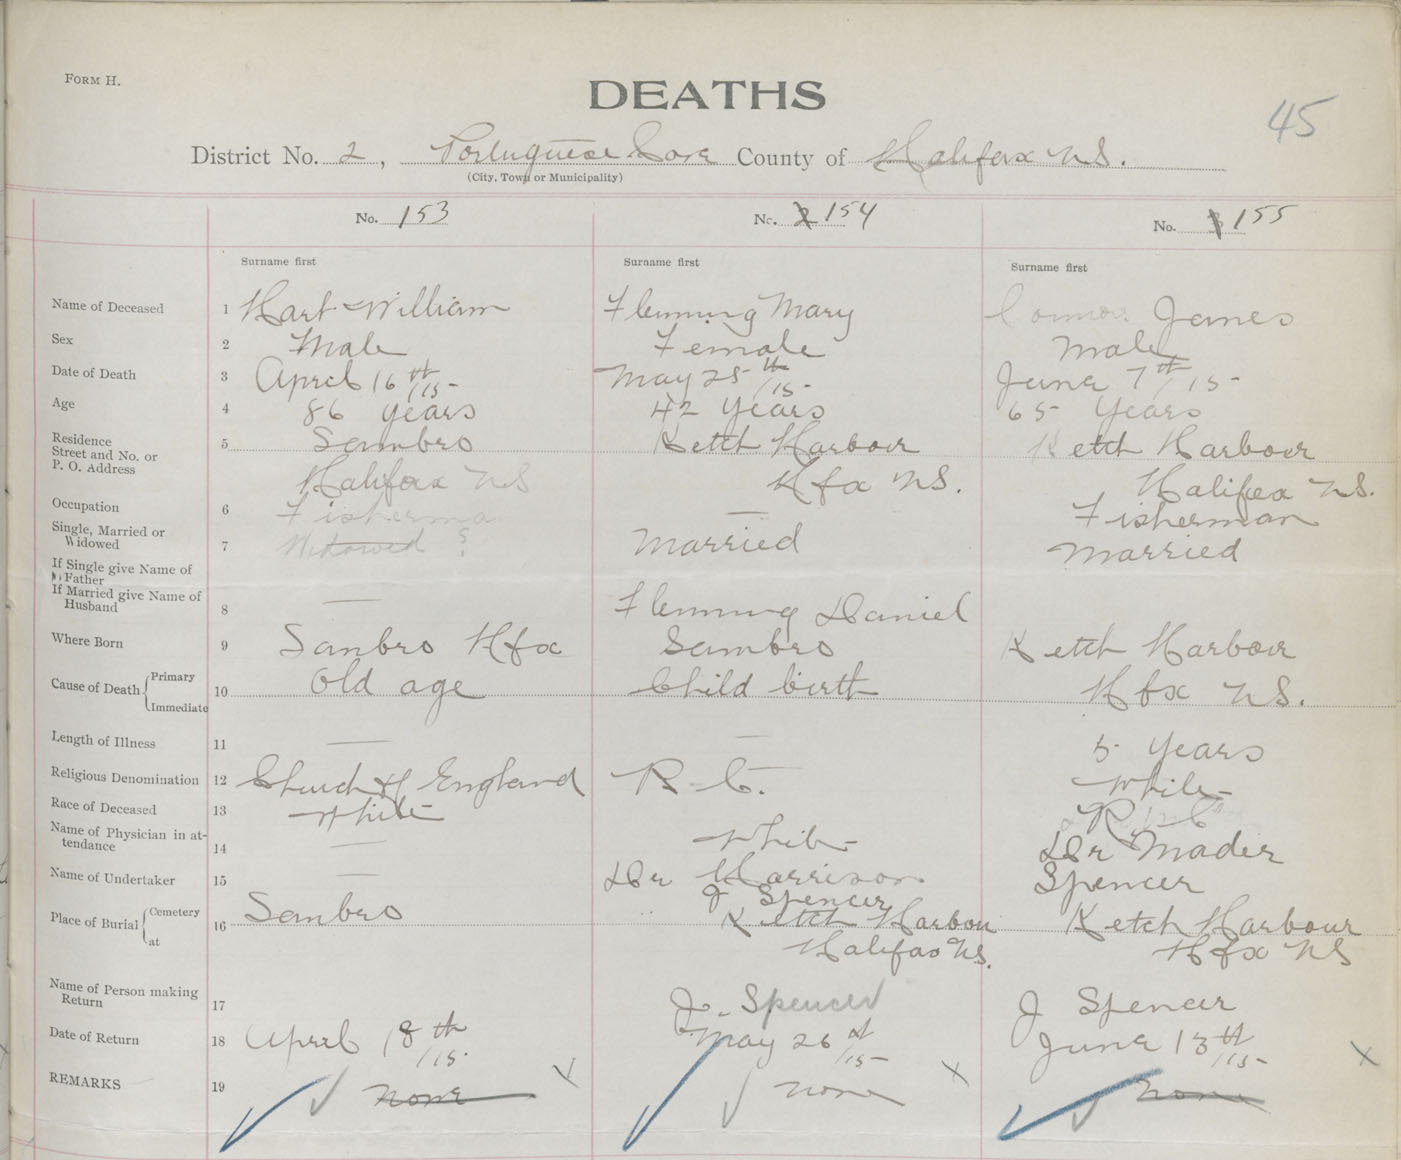 FORM H.
DEATHS
45
District No. 2, Portuguese Cove County of Halifax N.S.
(City, Town or Municipality)
No. 153 No. 154 No. 155
Surname first Surname first Surname first
Name of Deceased 1 Hart William Flemming Mary Connors James
Sex 2 Male Female Male
Date of Death 3 April 16th/15 May 25th/15 June 7th/15
Age 4 86 years 42 years 65 years
Residence Street and No. or P. O. Address 5 Sambro Ketch Harbour Ketch Harbour
Halifax NS Hfx NS. Halifax NS.
Occupation 6 Fisherma — Fisherman
Single, Married or Widowed 7 Widowed ? Married Married
If Single give Name of Father
If Married give Name of Husband 8 — Flemming Daniel
Where Born 9 Sanbro Hfx Sambro Ketch Harbour
Cause of Death Primary Immediate 10 Old age Child birth Hfx NS.
Length of Illness 11 — — 5 years
Religious Denomination 12 Church of England R. C. White
Race of Deceased 13 White R. C.
Name of Physician in attendance 14 — White Dr Mader
Name of Undertaker 15 — Dr Harrison Spencer
J Spencer
Place of Burial Cemetery at 16 Sambro Ketch Harbou Ketch Harbour
Halifax NS. Hfx NS
Name of Person making Return 17 J. Spencer J Spencer
Date of Return 18 April 18th/15. May 26/15 June 13th/15
REMARKS 19 none none none